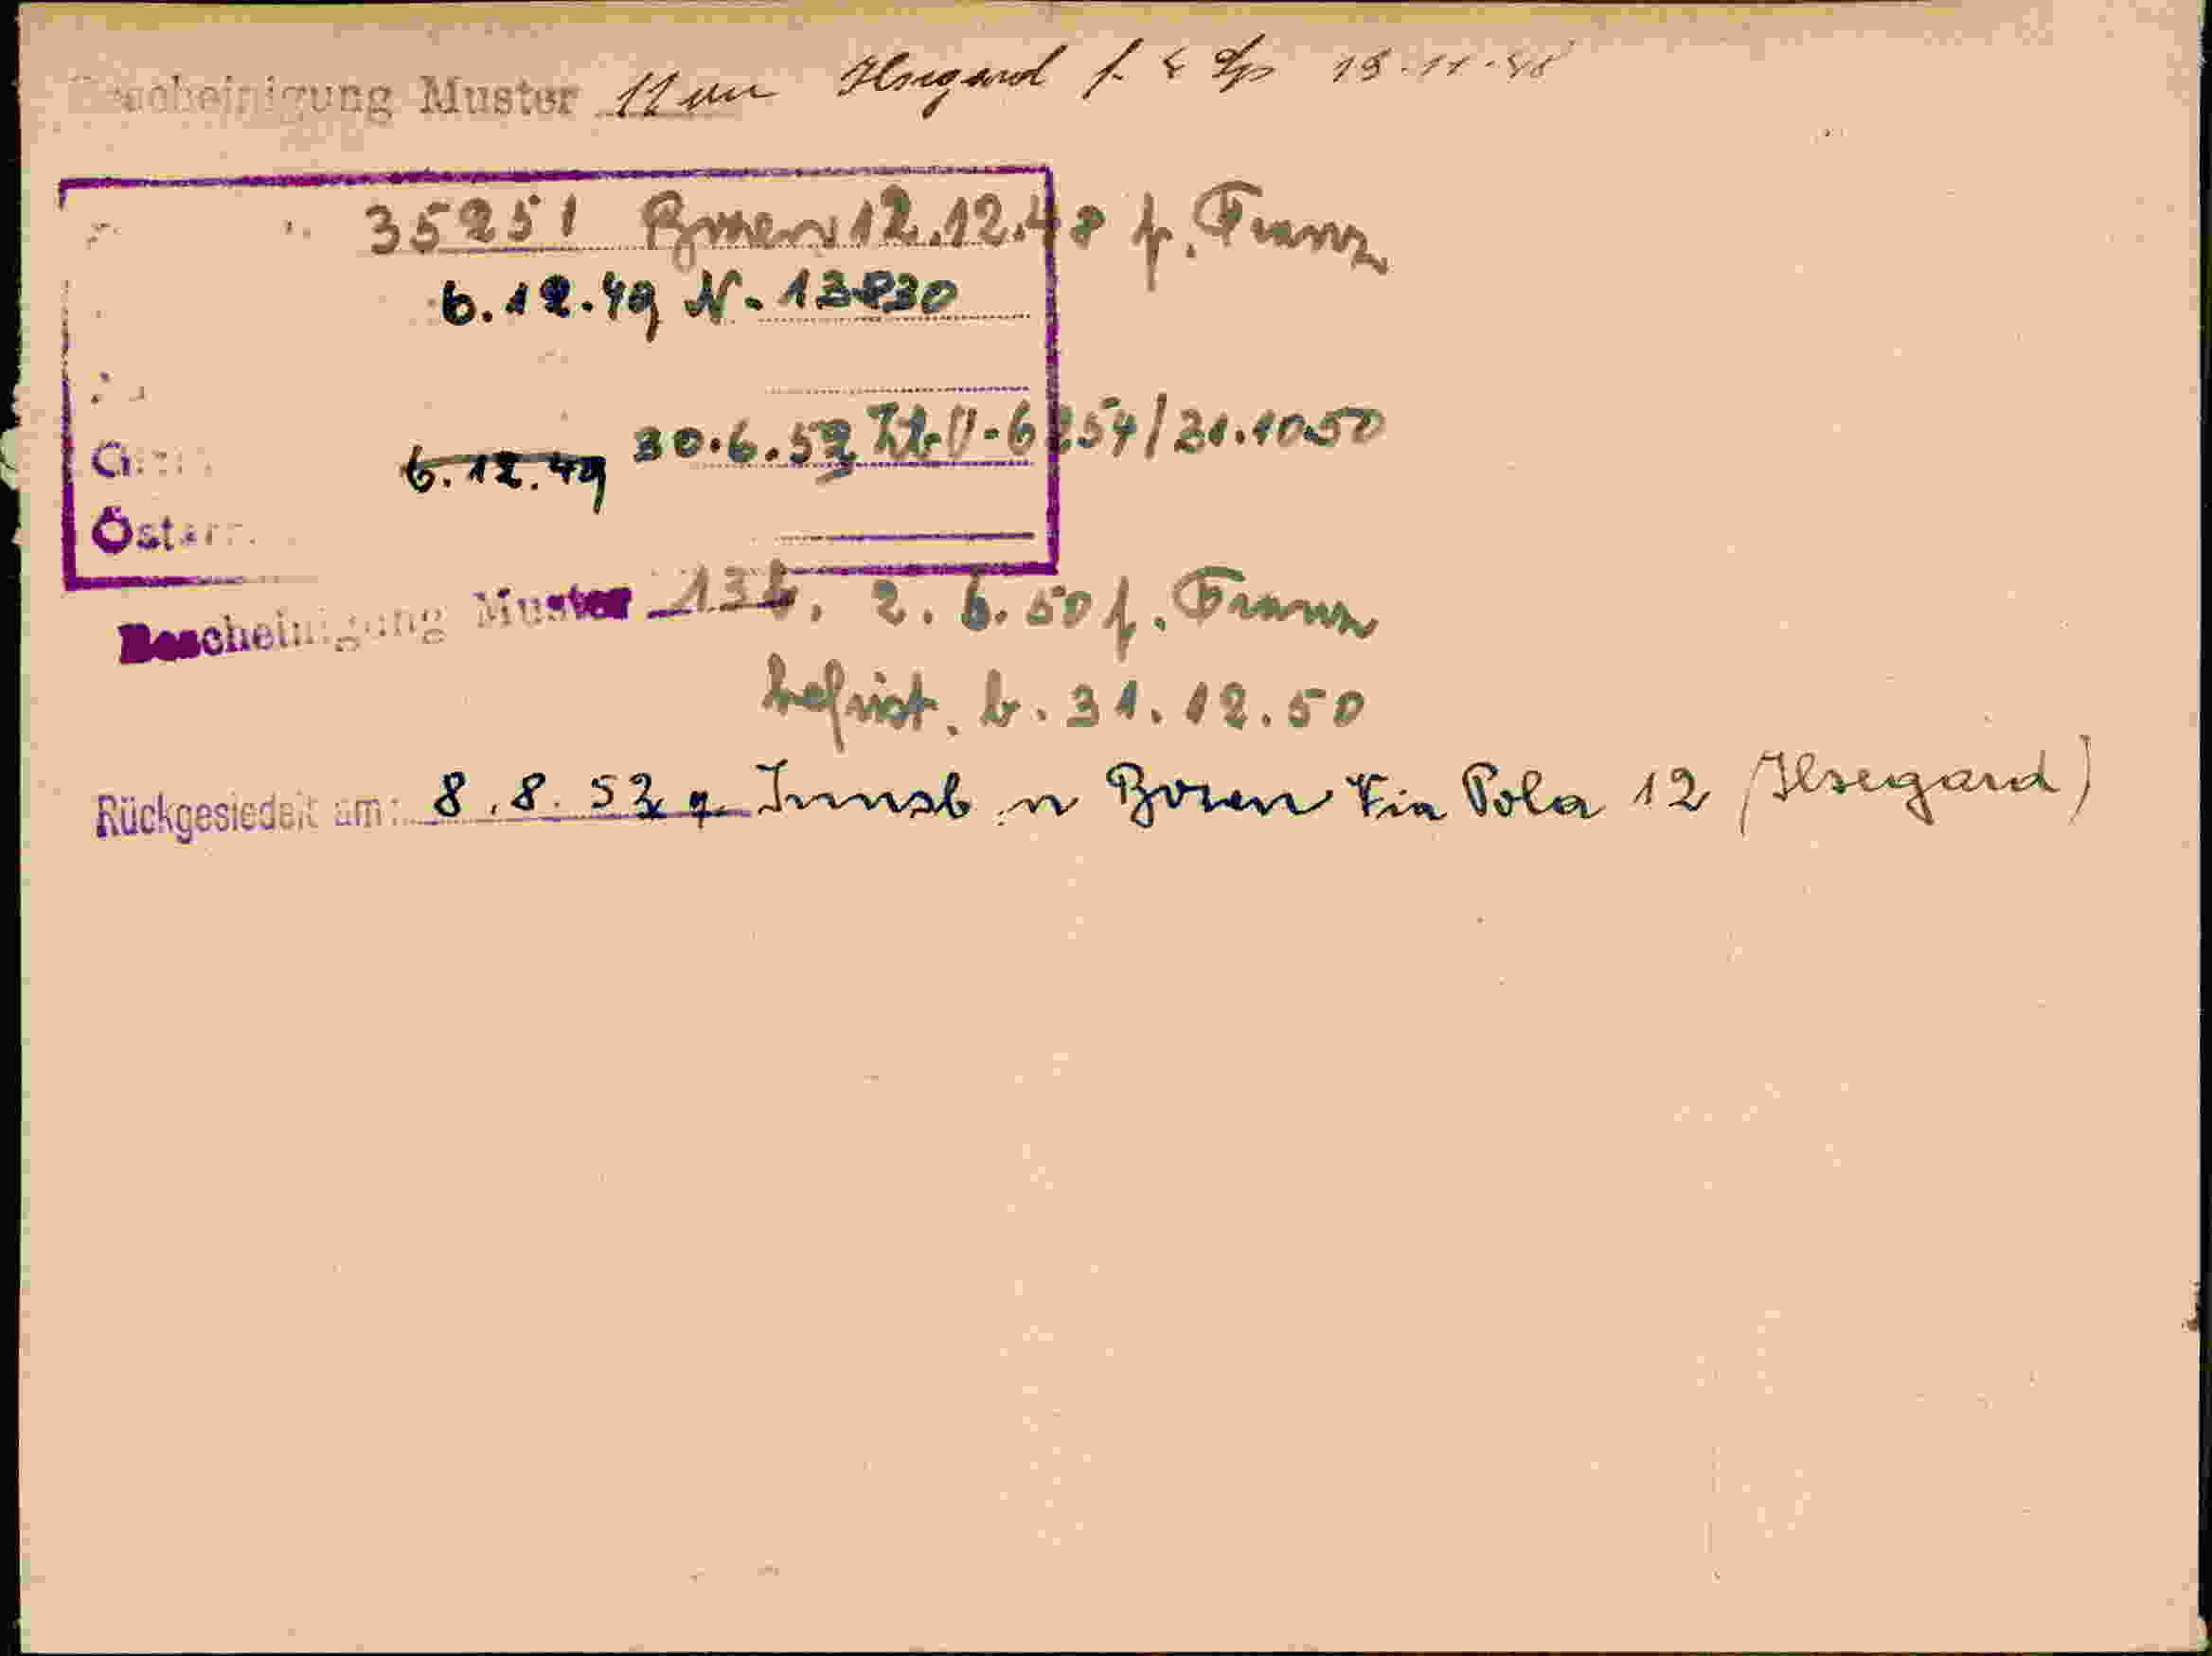 Bescheinigung Muster 11 an Ilsegard f. 19.11.48
35251 Bozen 12.12.48 f. Franz
6.12.49 N. 13830
6.12.49 30.6.52 6254/31.10.50
Österr.
Bescheinigung Muster 13b, 2.6.50 f. Franz
befrist. b. 31.12.50
Rückgesiedelt am: 8.8.52 Innsb n Bozen Via Pola 12 (Ilsegard)